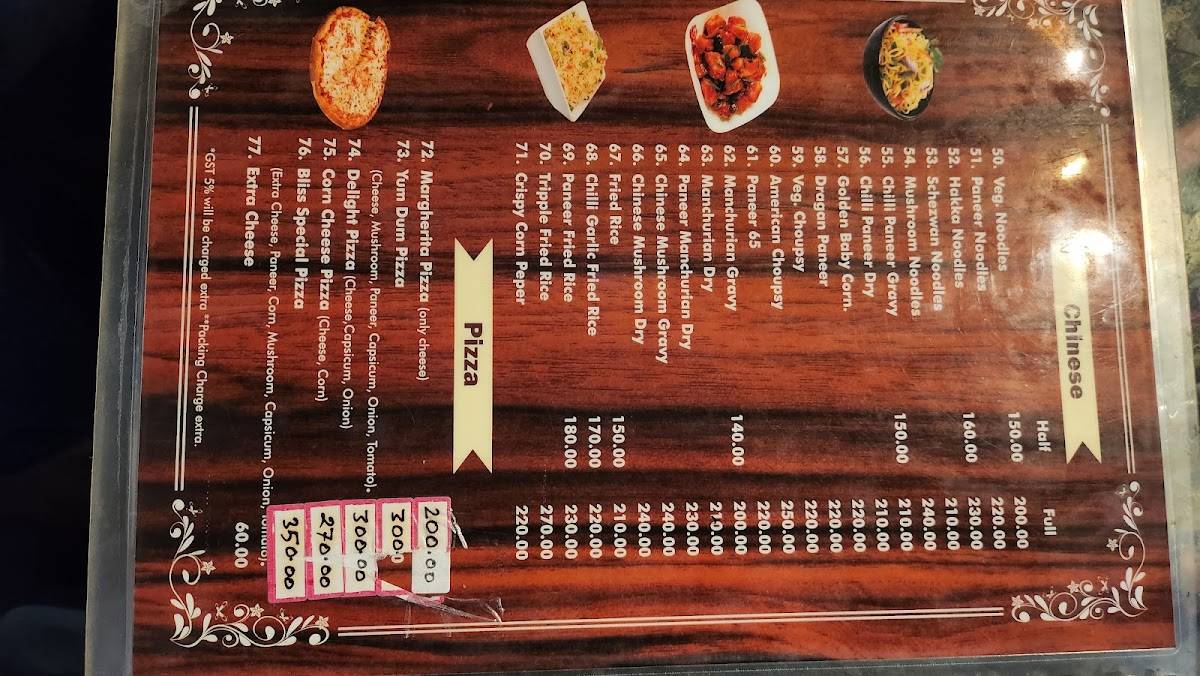 Chinese
Half Full
50. Veg. Noodles 150.00 200.00
51. Paneer Noodles 220.00
52. Hakka Noodles 160.00 230.00
53. Schezwan Noodles 210.00
54. Mushroom Noodles 240.00
55. Chilli Paneer Gravy 150.00 210.00
56. Chilli Paneer Dry 210.00
57. Golden Baby Corn. 220.00
58. Dragan Paneer 220.00
59. Veg. Choupsy 220.00
60. American Choupsy 250.00
61. Paneer 65 220.00
62. Manchurian Gravy 140.00 200.00
63. Manchurian Dry 210.00
64. Paneer Manchurian Dry 230.00
65. Chinese Mushroom Gravy 240.00
66. Chinese Mushroom Dry 240.00
67. Fried Rice 150.00 210.00
68. Chilli Garlic Fried Rice 170.00 220.00
69. Paneer Fried Rice 180.00 230.00
70. Tripple Fried Rice 270.00
71. Crispy Corn Peper 220.00
Pizza
72. Margherita Pizza (only cheese) 200.00
73. Yum Dum Pizza 300.00
(Cheese, Mushroom, Paneer, Capsicum, Onion, Tomato).
74. Delight Pizza (Cheese,Capsicum, Onion) 300.00
75. Corn Cheese Pizza (Cheese, Corn) 270.00
76. Bliss Special Pizza 350.00
(Extra Cheese, Paneer, Corn, Mushroom, Capsicum, Onion, Tomato).
77. Extra Cheese 60.00
*GST 5% will be charged extra **Packing Charge extra.